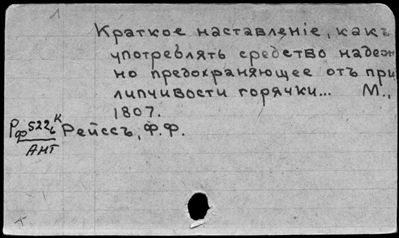 Краткое наставленіе, какъ
употреблять средство надеж
но предохраняющее отъ при
липчивости горячки... М.,
1807.
Рейссъ, Ф.Ф.
АНГ